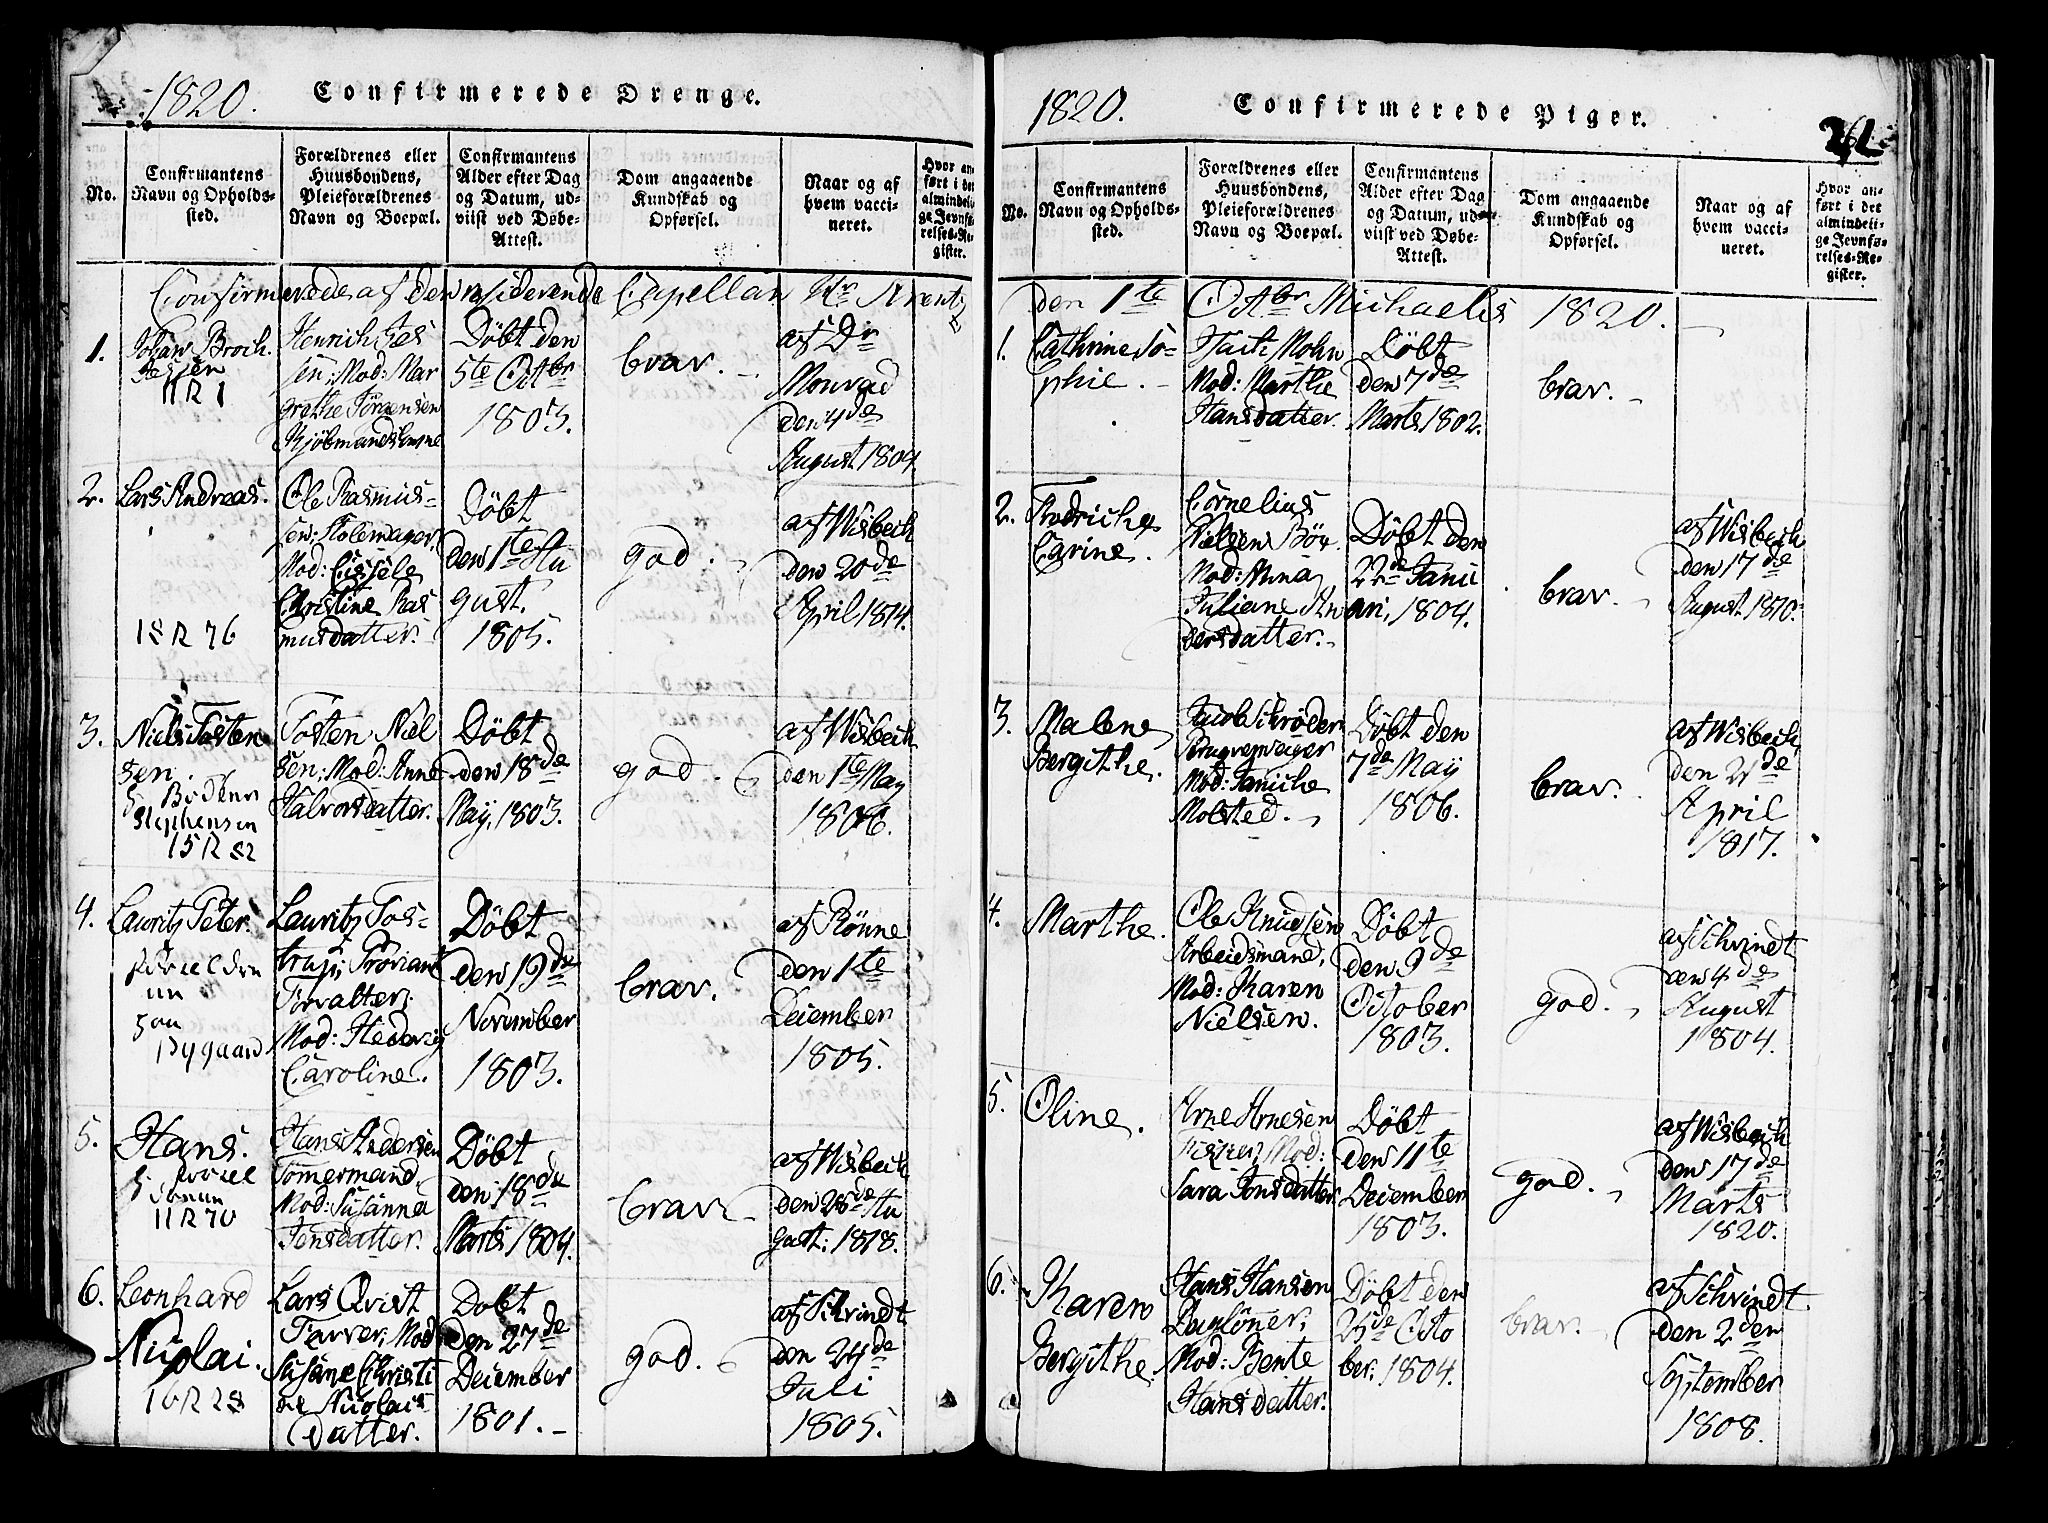 1820. Confirmerede Drenge.
No.
Confirmantens
Navn og Opholds-
sted.
Forældrenes eller
Huusbondens,
Pleieforældrenes
Navn og Boepæl.
Confirmantens
Alder efter Dag
og Datum, ud-
viist ved Døbe-
Attest.
Dom angaaende
Kundskab og
Opførsel.
Naar og af
hvem vacci-
neret.
Hvor an-
ført i det
almindeli-
ge Jevnfø-
relses-Re-
gister.
Confirmerede af den residerende Capellan Hr Arentz
1.
Johan Broch
Jessen
11 R 1
Henrich Jes
sen; Mod: Mar
grethe Jörgensen
Kjöbmandskone
Döbt den
5te Octbr
1803.
brav.
af Dr
Monrad
den 4de
August 1804
2.
Lars Andreas.
18 R 76
Ole Rasmus-
sen; Stolemager.
Mod: Cissele
Christine Ras
musdatter.
Döbt
den 1te Au
gust.
1805.
god.
af Wisbech
den 20de
April 1814.
3.
Niels Tosten
sen.
Stephensen
15 R 82
Tosten Niel
sen; Mod: Anne
Halvorsdatter.
Döbt
den 18de
May, 1803.
god.
af Wisbech
den 1te May
1806.
4.
Lauritz Peter.
Lauritz Tos-
trup; Proviant
Forvalter;
Mod: Hedevig
Caroline.
Döbt
den 19de
November
1803.
brav.
af Rönne
den 1te
December
1805.
5.
Hans.
11 R 70
Hans Andersen
Tömmermand,
Mod: Susanna
Jensdatter.
Döbt
den 18de
Marts 1804.
brav
af Wisbech
den 28de Au
gust: 1818.
6.
Leonhard
Nicolai.
16 R 28
Lars Qvist
Farver; Mod
Susane Christi
ne Nicolais
datter.
Dobt
den 27de
December
1801.
god.
af Schvindt
den 24de
Juli
1805.
1820. Confirmerede Piger.
No.
Confirmantens
Navn og Opholds-
sted.
Forældrenes eller
Huusbondens,
Pleieforældrenes
Navn og Boepæl.
Confirmantens
Alder efter Dag
og Datum, ud-
viist ved Døbe-
Attest.
Dom angaaende
Kundskab og
Opførsel.
Naar og af
hvem vacci-
neret.
Hvor an-
ført i det
almindeli-
ge Jevnfø-
relses-Re-
gister.
den 1te Octbr Michaelis 1820.
1.
Cathrine So-
phie.
Mohn
Mod: Marthe
Hansdatter.
Döbt
den 7de
Marts 1802.
brav.
2.
Fredriche
Carine.
Cornelius
Nielsen Böe.
Mod: Anna
Juliane An
dersdatter.
Döbt den
22de Janu
ari, 1804.
brav.
af Wisbech
den 17de
August 1810.
3.
Malene
Bergithe.
Jacob Schröder
Mod: Janiche
Molsted.
Döbt den
7de May
1806.
brav.
af Wisbech
den 21de
April
1817.
4.
Marthe.
Ole Knudsen
Arbeidsmand,
Mod: Karen
Nielsen.
Döbt
den 9de
October
1803.
god.
af Schvindt
den 4de
August
1804.
5.
Oline.
Arne Arnesen
Mod:
Sara Jonsdatter.
Döbt
den 11te
December
1803.
god.
af Wisbech
den 17de
Marts
1820.
6.
Karen
Bergithe.
Hans Hansen
Daglönner;
Mod: Bente
Hansdatter.
Döbt den
25de Octo
ber; 1804.
brav.
af Schvindt
den 2den
September
1808.